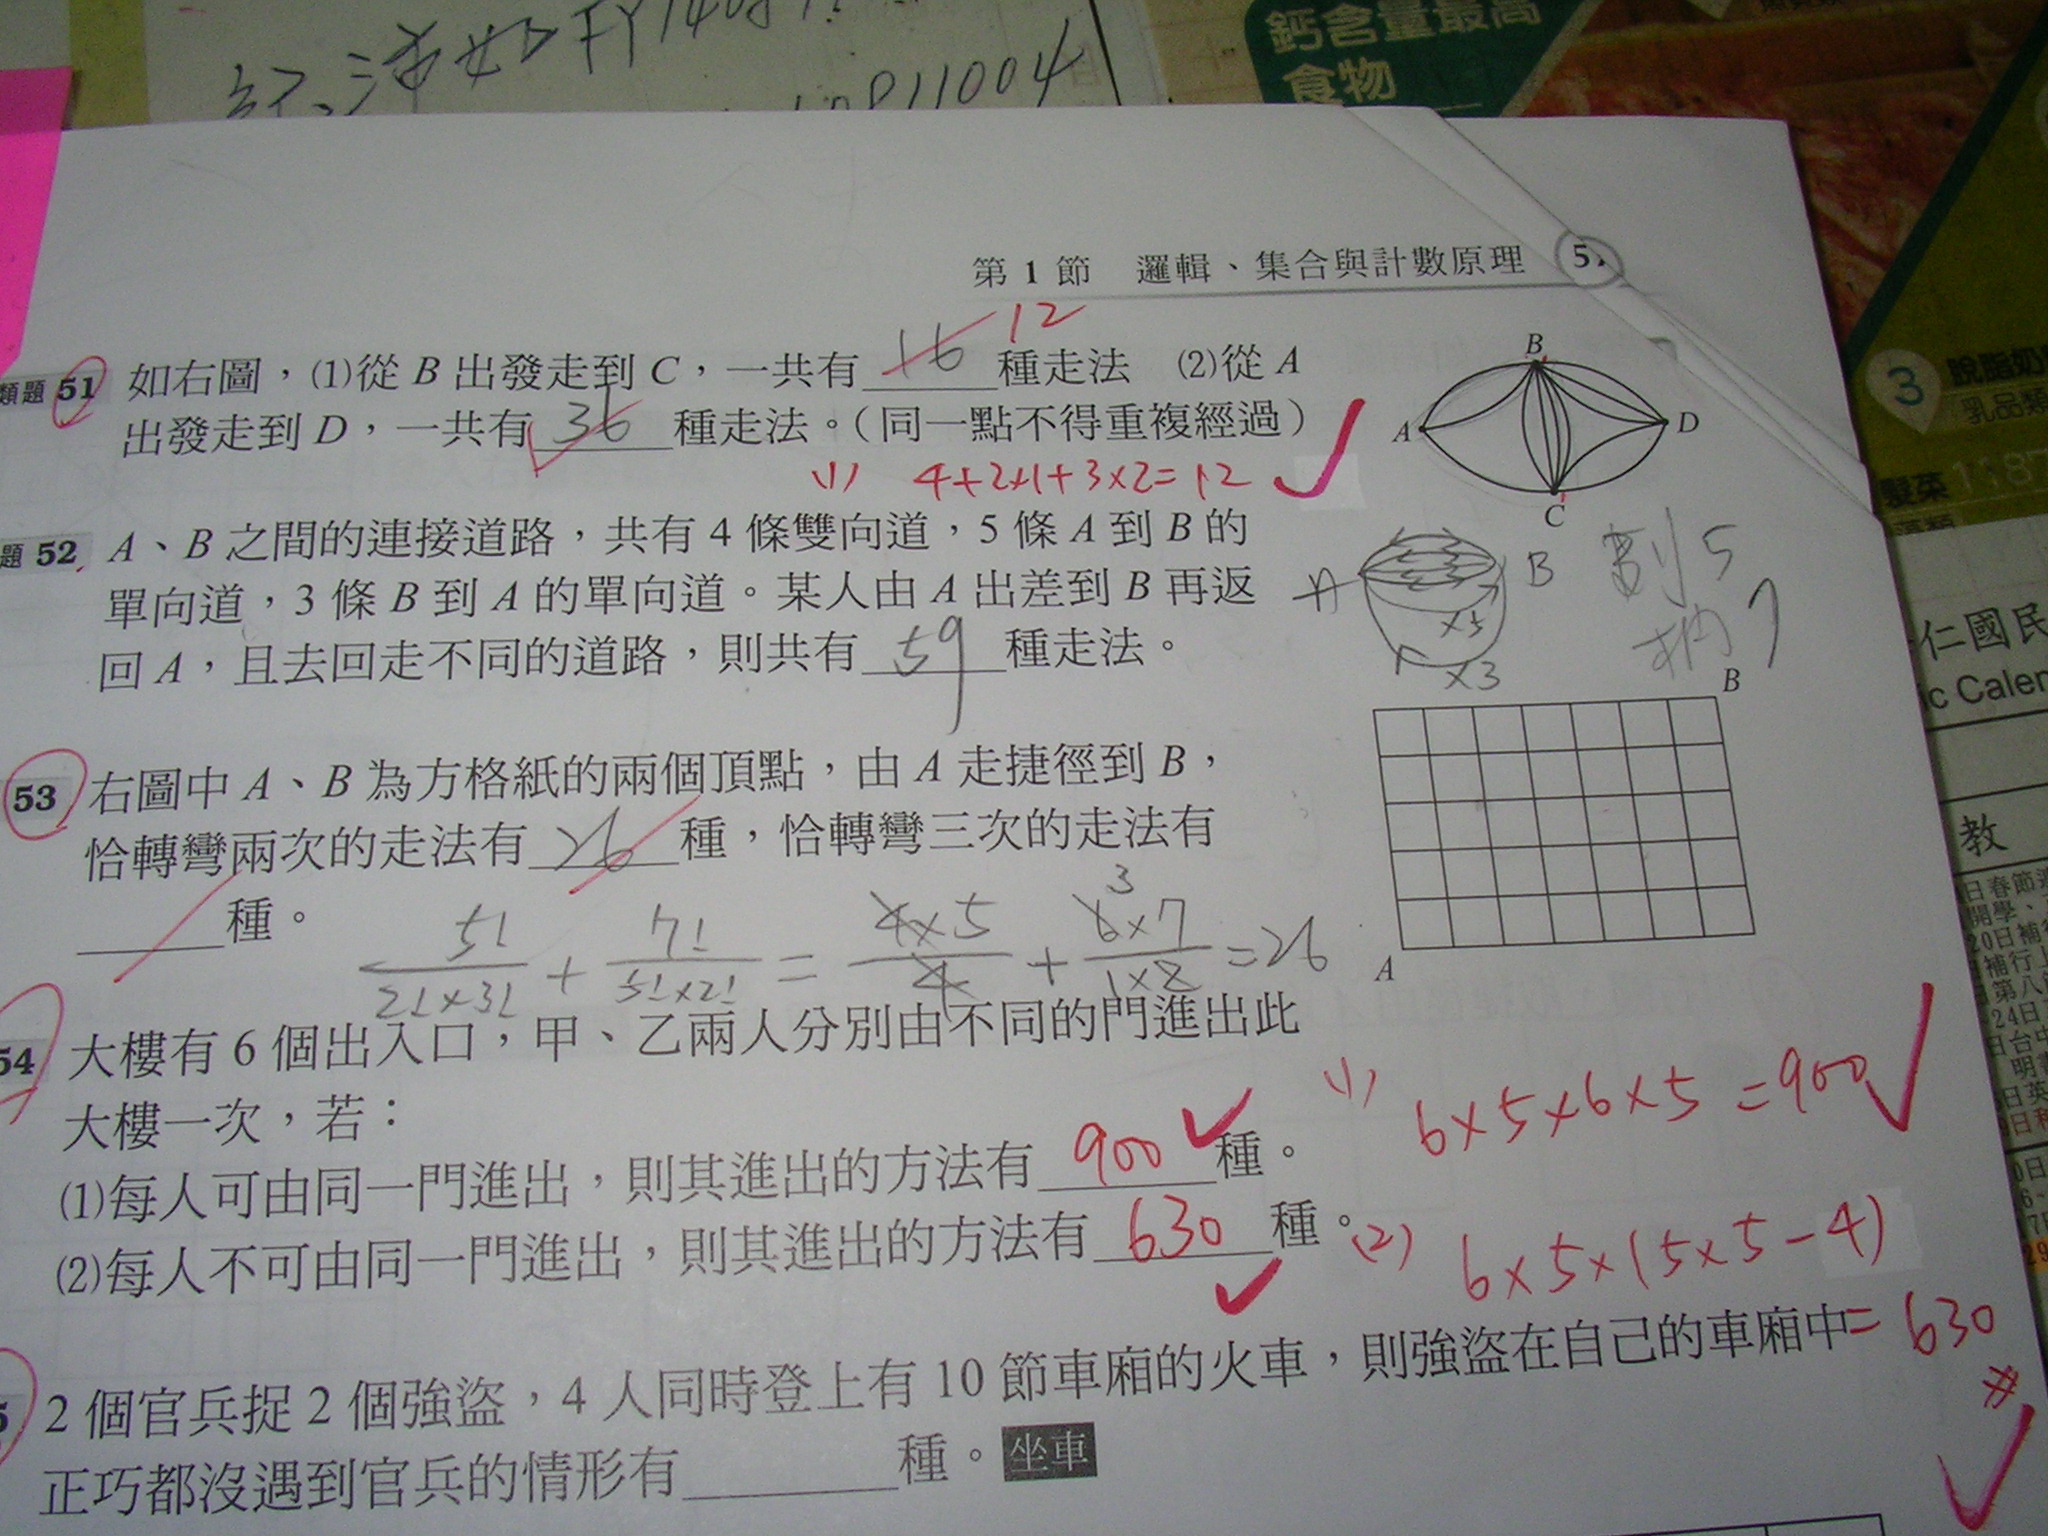 鈣含量最高
食物
811004
第 1 節 邏輯、集合與計數原理
12
類題 51 如右圖，(1)從 B 出發走到 C，一共有 16 種走法 (2)從 A
出發走到 D，一共有 36 種走法。（同一點不得重複經過）
(1) 4+2×1+3×2=12
B
A
D
C
題 52 A、B 之間的連接道路，共有 4 條雙向道，5 條 A 到 B 的
單向道，3 條 B 到 A 的單向道。某人由 A 出差到 B 再返
回 A，且去回走不同的道路，則共有 59 種走法。
A
B
×5
×3
53 右圖中 A、B 為方格紙的兩個頂點，由 A 走捷徑到 B，
恰轉彎兩次的走法有 26 種，恰轉彎三次的走法有
種。
5!/2!×3! + 7!/5!×2! = 4×5/4 + 6×7/1×2 = 26
3
B
A
54 大樓有 6 個出入口，甲、乙兩人分別由不同的門進出此
大樓一次，若：
(1)每人可由同一門進出，則其進出的方法有 900 種。
(1) 6×5×6×5=900
(2)每人不可由同一門進出，則其進出的方法有 630 種。
(2) 6×5×(5×5-4)
=630
2 個官兵捉 2 個強盜，4 人同時登上有 10 節車廂的火車，則強盜在自己的車廂中
正巧都沒遇到官兵的情形有 種。坐車
3
脫脂奶
乳品類
髮菜 1187
仁國民
ic Calen
教